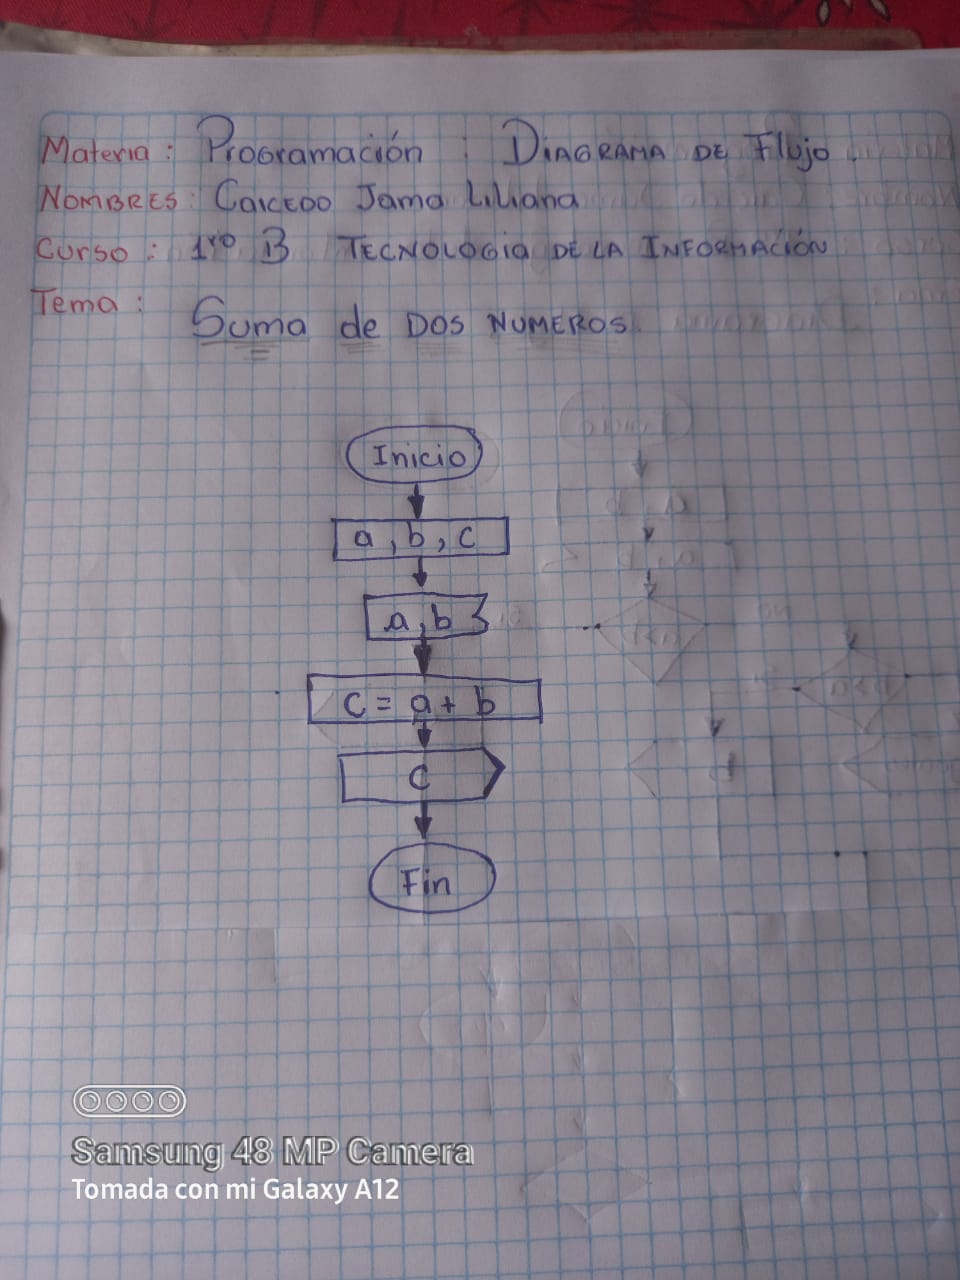 Materia : Programación : Diagrama de Flujo.
Nombres : Caicedo Jama Liliana
Curso : 1ro B Tecnologia de la Información
Tema :
Suma de Dos Numeros.
Inicio
a, b, c
a, b
c = a + b
c
Fin
Samsung 48 MP Camera
Tomada con mi Galaxy A12